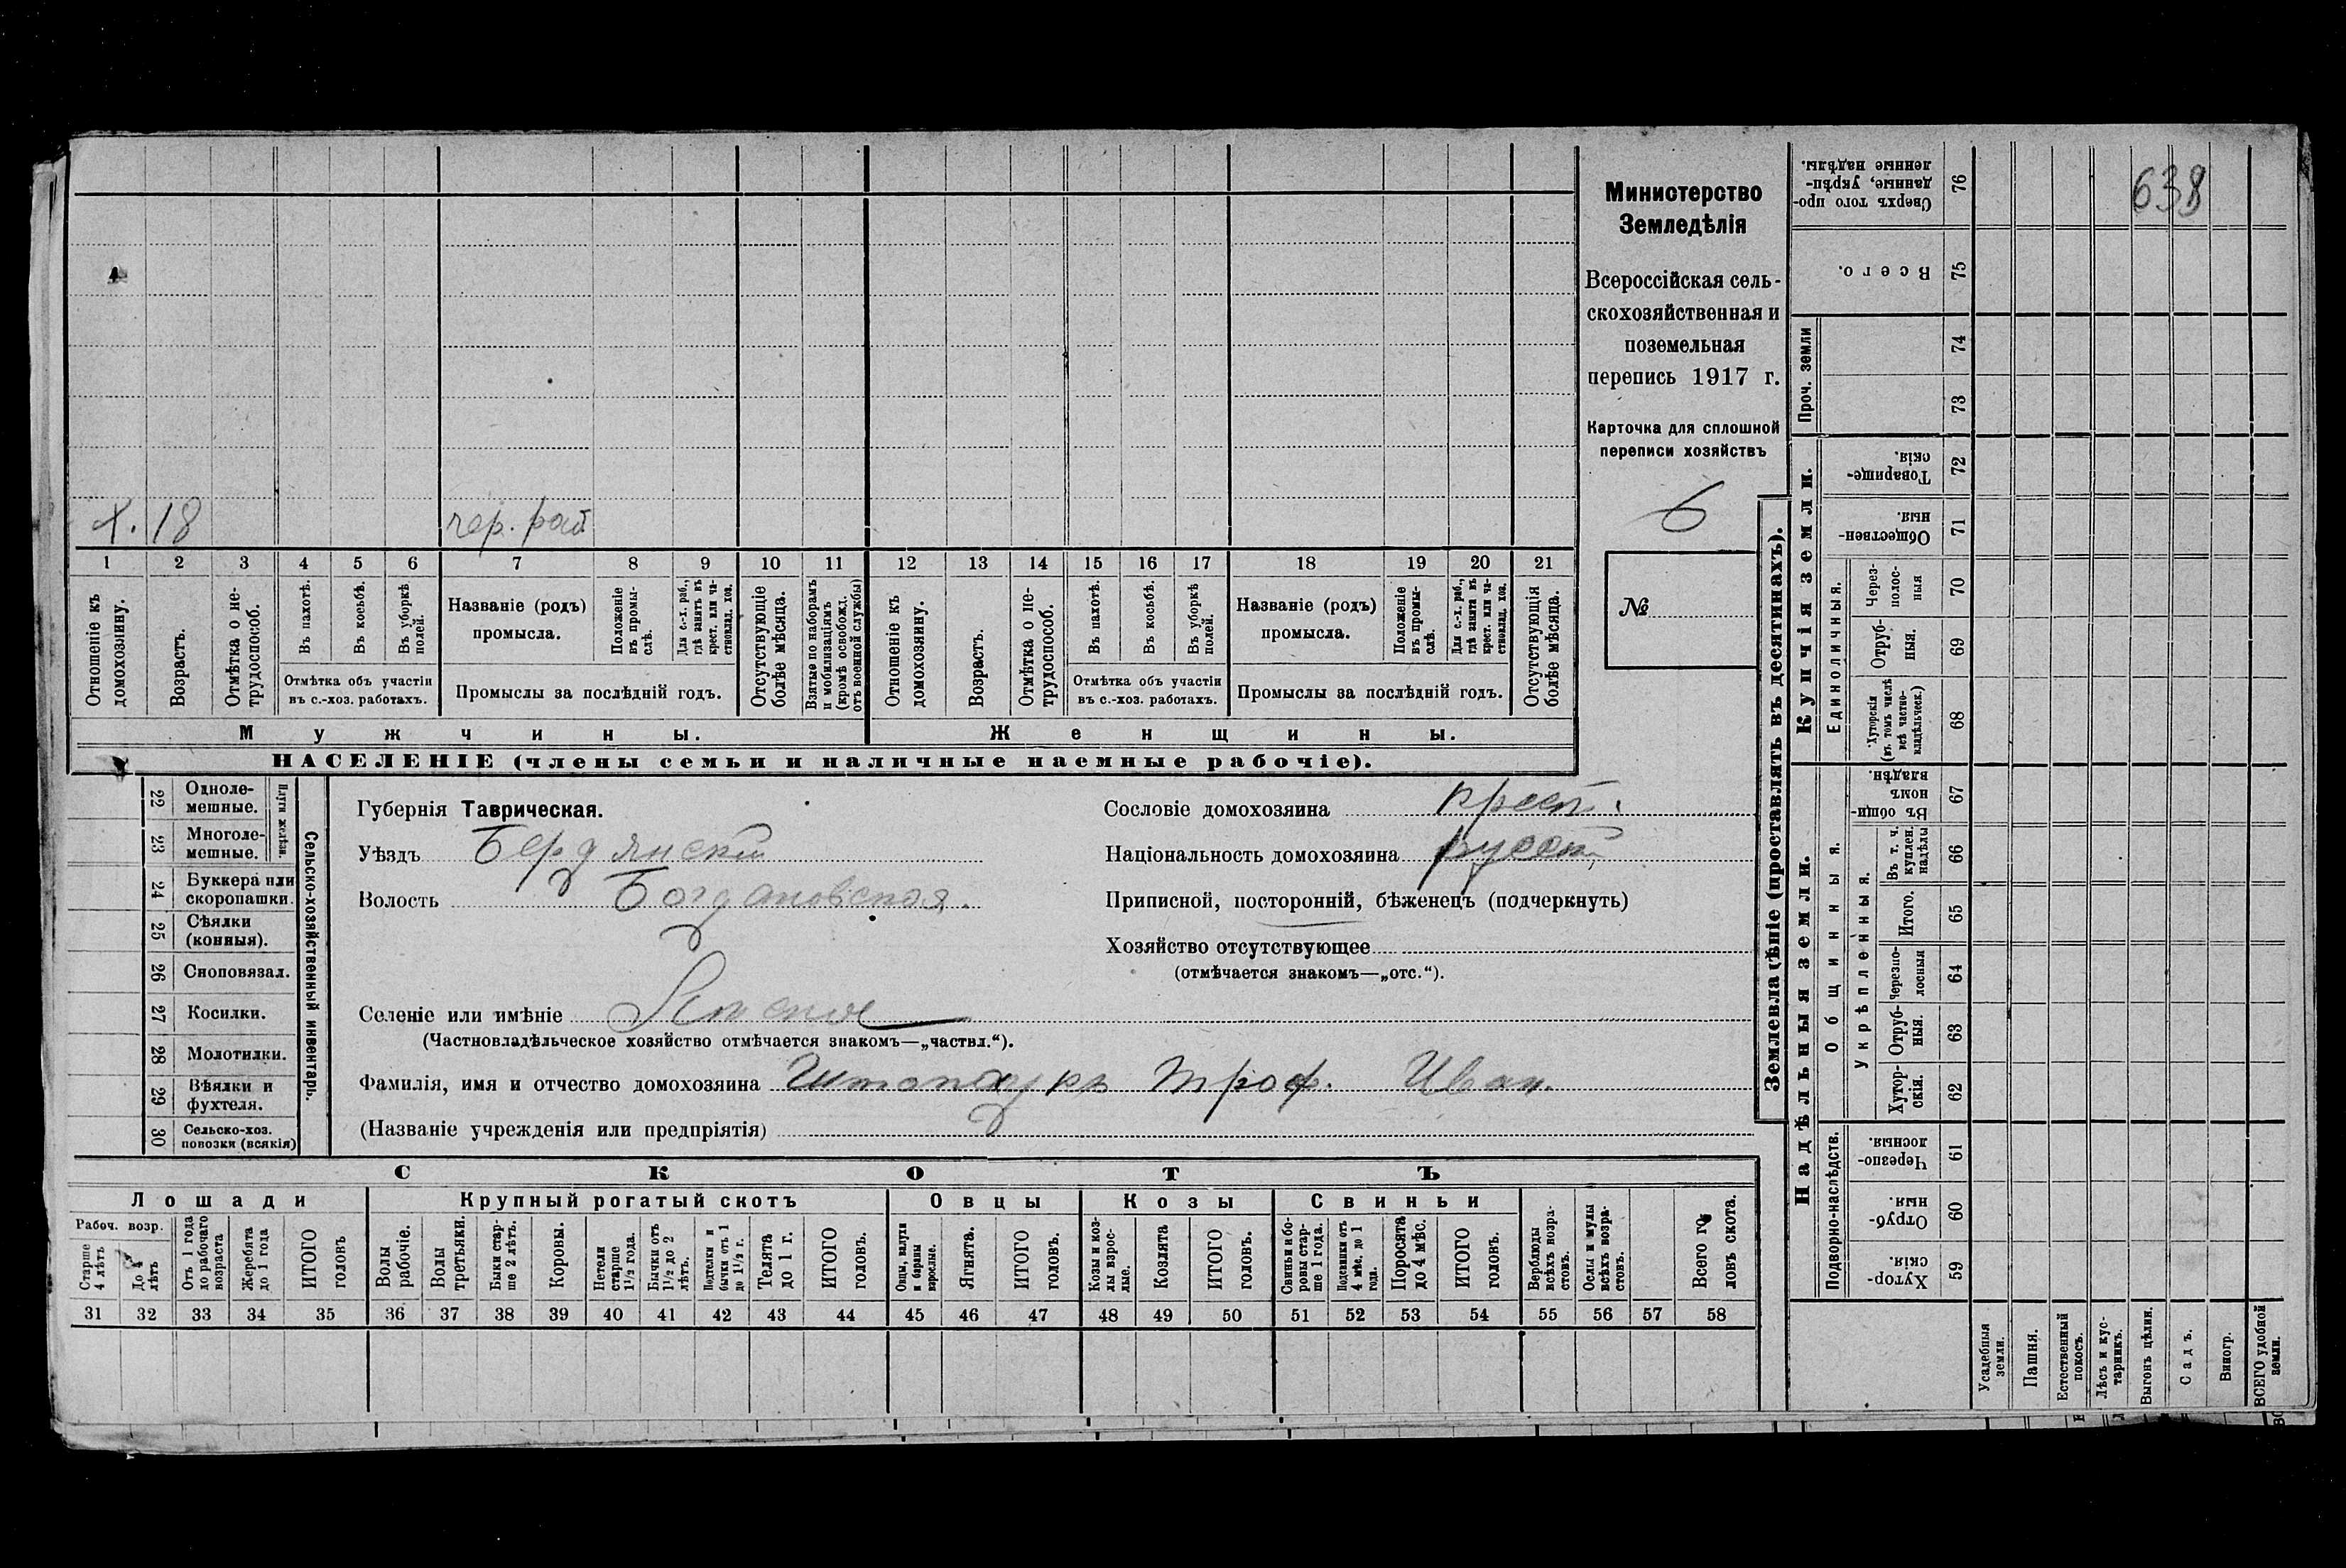 638
Министерство
Земледѣлія
Всероссійская сель-
скохозяйственная и
поземельная
перепись 1917 г.
Карточка для сплошной
переписи хозяйствъ
6
№
х. 18 чер. раб.
1 2 3 4 5 6 7 8 9 10 11 12 13 14 15 16 17 18 19 20 21
Отношеніе къ домохозяину.
Возрастъ.
Отмѣтка о не-трудоспособ.
Въ пахотѣ.
Въ косьбѣ.
Въ уборкѣ полей.
Отмѣтка объ участіи
въ с.-хоз. работахъ.
Названіе (родъ)
промысла.
Положеніе въ промы-слѣ.
Для с.-х. раб., гдѣ занятъ въ крест. или ча-стновлад. хоз.
Промыслы за послѣдній годъ.
Отсутствующіе болѣе мѣсяца.
Взятые по наборамъ и мобилизаціямъ (кромѣ освобожд. отъ военной службы)
Отношеніе къ домохозяину.
Возрастъ.
Отмѣтка о не-трудоспособ.
Въ пахотѣ.
Въ косьбѣ.
Въ уборкѣ полей.
Отмѣтка объ участіи
въ с.-хоз. работахъ.
Названіе (родъ)
промысла.
Положеніе въ промы-слѣ.
Для с.-х. раб., гдѣ занята въ крест. или ча-стновлад. хоз.
Промыслы за послѣдній годъ.
Отсутствующія болѣе мѣсяца.
Мужчины. Женщины.
НАСЕЛЕНІЕ (члены семьи и наличные наемные рабочіе).
22 Одноле-мешные.
23 Многоле-мешные.
Плуги желѣзн.
24 Буккера или скоропашки.
25 Сѣялки (конныя).
26 Сноповязал.
27 Косилки.
28 Молотилки.
29 Вѣялки и фухтеля.
30 Сельско-хоз. повозки (всякія)
Сельско-хозяйственный инвентарь.
Губернія Таврическая.
Уѣздъ Бердянскій
Волость Богдановская.
Селеніе или имѣніе
(Частновладѣльческое хозяйство отмѣчается знакомъ—„частвл.“).
Фамилія, имя и отчество домохозяина Троф. Иван.
(Названіе учрежденія или предпріятія)
Сословіе домохозяина крест.
Національность домохозяина русск.
Приписной, посторонній, бѣженецъ (подчеркнуть)
Хозяйство отсутствующее
(отмѣчается знакомъ—„отс.“).
СКОТЪ
Лошади Крупный рогатый скотъ Овцы Козы Свиньи
Рабоч. возр.
Старше 4 лѣтъ
До 4 лѣтъ
Отъ 1 года до рабочаго возраста
Жеребята до 1 года
ИТОГО головъ
Волы рабочіе.
Волы третьяки.
Быки стар-ше 2 лѣтъ.
Коровы.
Нетели старше 1½ года.
Бычки отъ 1½ до 2 лѣтъ.
Подтелки и бычки отъ 1 до 1½ г.
Телята до 1 г.
ИТОГО головъ.
Овцы, валухи и бараны взрослые.
Ягнята.
ИТОГО головъ.
Козы и коз-лы взрос-лые.
Козлята
ИТОГО головъ.
Свиньи и бо-ровы стар-ше 1 года.
Подсвинки отъ 4 мѣс. до 1 года.
Поросята до 4 мѣс.
ИТОГО головъ.
Верблюды всѣхъ возра-стовъ.
Ослы и мулы всѣхъ возра-стовъ.
Всего го-ловъ скота.
31 32 33 34 35 36 37 38 39 40 41 42 43 44 45 46 47 48 49 50 51 52 53 54 55 56 57 58
Землевладѣніе (проставлять въ десятинахъ).
Надѣльныя земли. Купчія земли. Проч. земли
Подворно-наслѣдств.
Общинныя.
Укрѣпленныя.
Единоличныя.
Сверхъ того про-данные, укрѣп-ленные надѣлы. 76
Всего. 75
74
73
Товарище-скія. 72
Обществен-ныя. 71
Через-полос-ныя 70
Отруб-ныя. 69
Хуторскія (въ томъ числѣ всѣ частно-владѣльческ.) 68
Въ общи-номъ владѣн. 67
Въ т. ч. куплен. надѣлы 66
Итого. 65
Черезпо-лосныя 64
Отруб-ныя. 63
Хутор-скія. 62
Черезпо-лосныя. 61
Отруб-ныя. 60
Хутор-скія. 59
Усадебныя земли.
Пашня.
Естественный покосъ.
Лѣсъ и кус-тарникъ.
Выгонъ цѣлин.
Садъ.
Виногр.
ВСЕГО удобной земли.